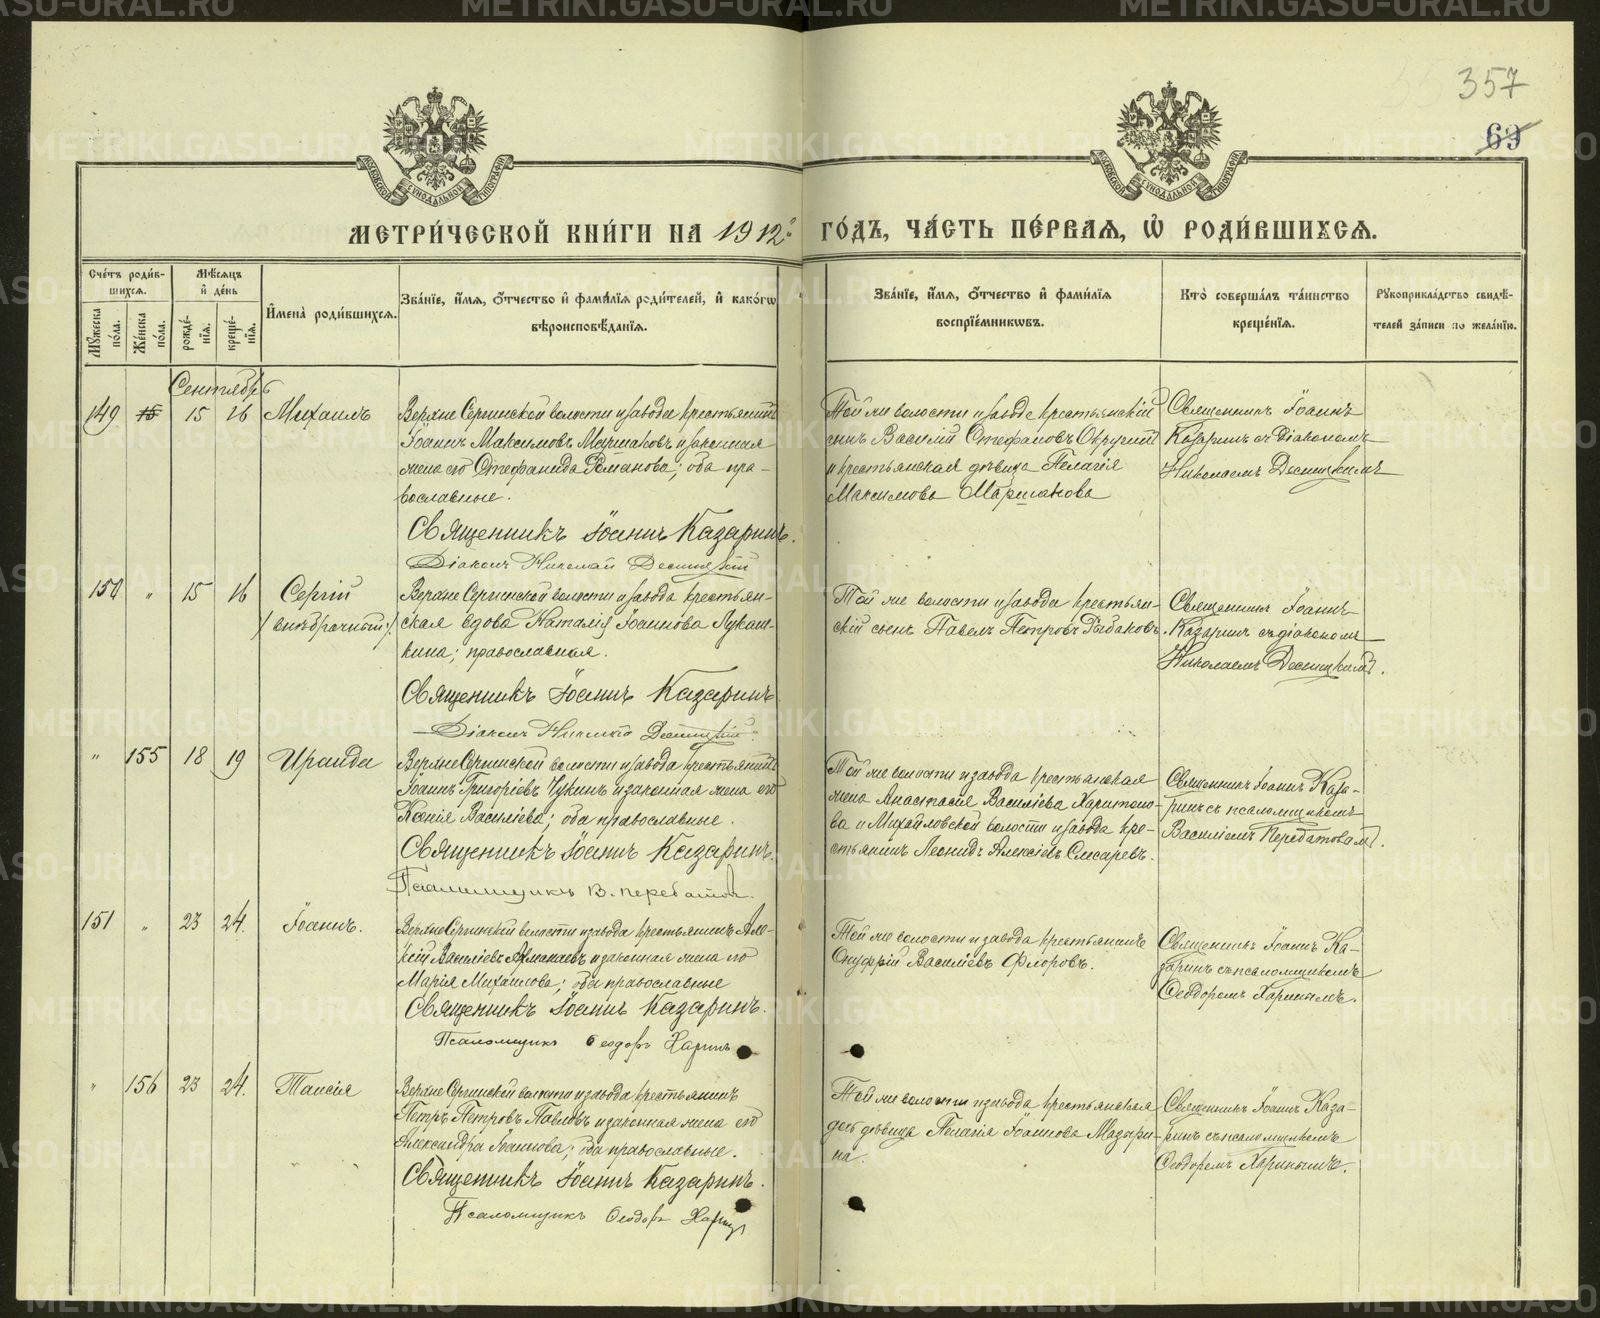 357
69
МОСКОВСКОЙ СУНОДАЛЬНОЙ ТИПОГРАФІИ
МОСКОВСКОЙ СУНОДАЛЬНОЙ ТИПОГРАФІИ
МЕТРИ́ЧЕСКОЙ КНИ́ГИ НА 1912й ГО́ДЪ, ЧА́СТЬ ПЕ́РВАЯ, Ѡ҆ РОДИ́ВШИХСЯ.
Сче́тъ роди́в-
шихся.
Мѣ́сяцъ
и҆ де́нь
Мꙋ́жеска
по́ла.
Же́нска
по́ла.
рожде́-
нїя.
креще́-
нїя.
И҆мена̀ роди́вшихся.
Зва́нїе, и҆́мя, ѻ҆́тчество и҆ фами́лїя роди́телей, и҆ како́гѡ
вѣроисповѣ́данїя.
Зва́нїе, и҆́мя, ѻ҆́тчество и҆ фами́лїя
воспрїе́мникѡвъ.
Кто̀ соверша́лъ та́инство
креще́нїя.
Рꙋкоприкла́дство свидѣ́-
телей за́писи по жела́нїю.
Сентябрь
149
15
15
16
Михаилъ
Верхне Сергинской волости и завода крестьянинъ
Іоаннъ Максимовъ Маршаковъ и законная
жена его Стефанида Романова; оба пра-
вославные.
Священникъ Іоаннъ Казаринъ.
Діаконъ Николай Десницкій
Той же волости и завода крестьянскій
сынъ Василій Стефановъ
и крестьянская дѣвица Пелагія
Максимова Маршакова
Священникъ Іоаннъ
Казаринъ съ діакономъ
Николаемъ Десницкимъ
150
"
15
16
Сергій
(внѣбрачный.)
Верхне Сергинской волости и завода крестьян-
ская вдова Наталія Іоаннова Лукаш-
кина; православная.
Священникъ Іоаннъ Казаринъ
Діаконъ Николай Десницкій.
Той же волости и завода крестьян-
скій сынъ Павелъ Петровъ Рыбаковъ.
Священникъ Іоаннъ
Казаринъ съ діакономъ
Николаемъ Десницкимъ.
"
155
18
19
Ираида
Верхне Сергинской волости и завода крестьянинъ
Іоаннъ Григоріевъ Чукинъ и законная жена его
Ксенія Василіева; оба православные.
Священникъ Іоаннъ Казаринъ.
Псаломщикъ В. Перебатовъ.
Той же волости и завода крестьянская
жена Анастасія Василіева Харитоно-
ва и Михайловской волости и завода кре-
стьянинъ Леонидъ Алексіевъ Слесаревъ.
Священникъ Іоаннъ Каза-
ринъ съ псаломщикомъ
Василіемъ Перебатовымъ.
151
"
23
24.
Іоаннъ.
Верхне Сергинской волости и завода крестьянинъ Але-
ксій Василіевъ Асманаевъ и законная жена его
Марія Михаилова; оба православные
Священникъ Іоаннъ Казаринъ.
Псаломщикъ Ѳеодоръ Харинъ
Той же волости и завода крестьянинъ
Онуфрій Василіевъ Флоровъ.
Священникъ Іоаннъ Ка-
заринъ съ псаломщикомъ
Ѳеодоромъ Харинымъ.
"
156
23
24.
Таисія
Верхне Сергинской волости и завода крестьянинъ
Петръ Петровъ Павловъ и законная жена его
Александра Іоаннова; оба православные.
Священникъ Іоаннъ Казаринъ.
Псаломщикъ Ѳеодоръ Харинъ
Той же волости и завода крестьянская
дочь дѣвица Пелагія Іоаннова Мазари-
на.
Священникъ Іоаннъ Каза-
ринъ съ псаломщикомъ
Ѳеодоромъ Харинымъ.
METRIKI.GASO-URAL.RU